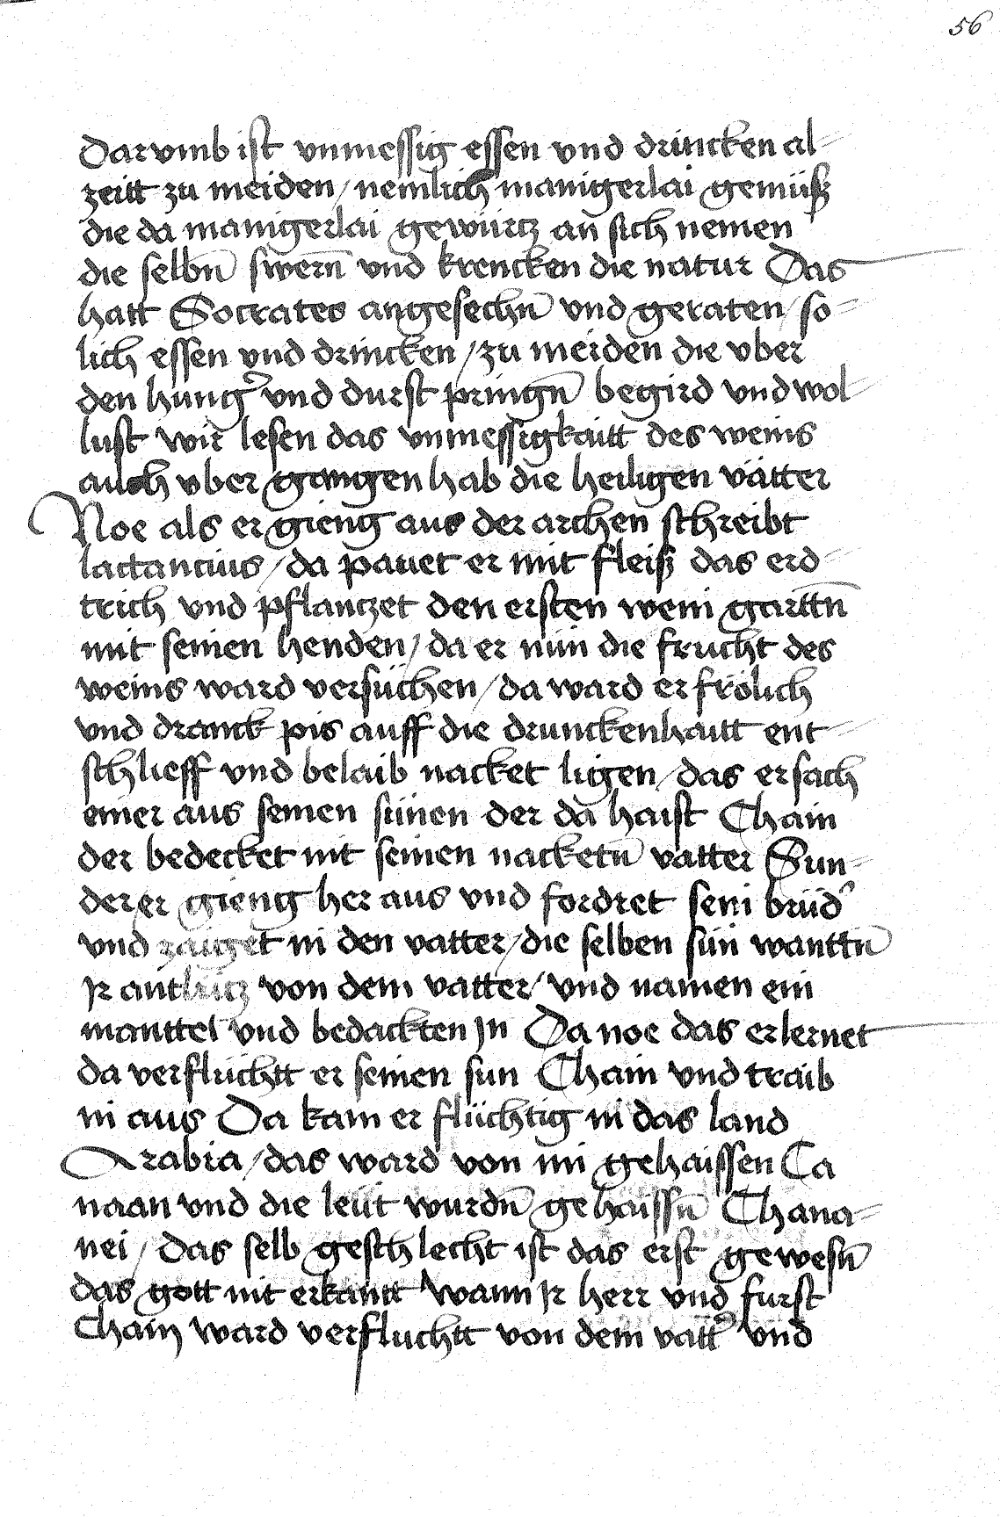 56
Darvmb ist vnmessig essen vnd drincken al-
zeitt zu meiden / nemlich manigerlai gemüsz
die da manigerlai gewürtz an sich nemen
die selbn̄ swern̄ vnd krencken die natur Das
hatt Socrates angesechn̄ vnd geraten / so-
lich essen vnd drincken / zu meiden die vber
den hung' vnd durst pringn̄ begird vnd wol-
lust wir lesen das vnmessigkaitt des weins
auch vber gangen hab die heiligen vätter
Noe als er gieng aus der archen schreibt
lactancius / da pauet er mit fleisz das erd-
trich vnd pflantzet den ersten wein garttn̄
mit seinen henden / da er nün die frucht des
weins ward versüchen / da ward er frölich
vnd dranck pis auff die drunckenhaitt ent-
schlieff vnd belaib nacket ligen / das ersach
einer aus seinen sünen der da haist Cham
der bedecket nit seinen nacketn̄ vatter Sun-
der er gieng her aus vnd fordret sein brüd'
vnd zaiget in den vatter / die selben sün wanttn̄
Ir antlütz von dem vatter / vnd namen ein
manttel vnd bedackten In Da noe das erlernet
da verflüchtt er seinen sun Cham vnd traib
in aus Da kam er flüchtig in das land
Arabia / das ward von im gehaissen Ca
naan vnd die leüt wurdn̄ gehaissn̄ Chana-
nei / Das selb geschlecht ist das erst gewesn̄
das gott nit erkantt Wann Ir herr vnd furst
Cham ward verfluchtt von dem vatt' vnd